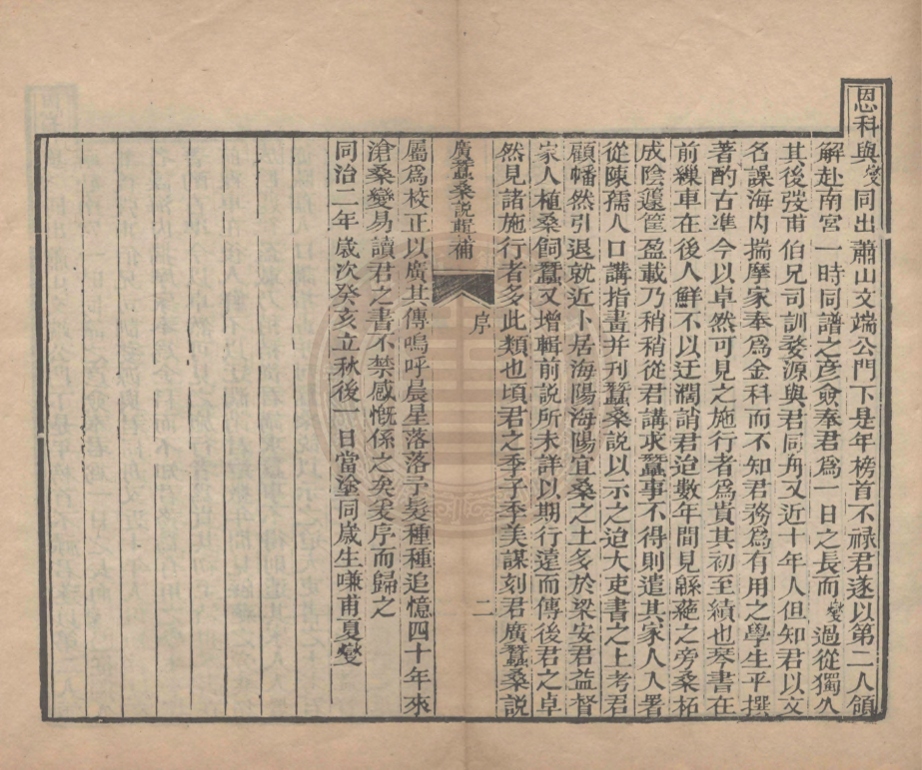 恩科與燮同出蕭山文端公門下是年榜首不祿君遂以第二人領
解赴南宮一時同譜之彥僉奉君爲一日之長而燮過從獨久
其後弢甫伯兄司訓婺源與君同舟又近十年人但知君以文
名譟海内揣摩家奉爲金科而不知君務爲有用之學生平撰
著酌古準今以卓然可見之施行者爲貴其初至績也琴書在
前繅車在後人鮮不以迂濶誚君迨數年間見緜蕝之旁桑柘
成陰籩筐盈載乃稍稍從君講求蠶事不得則遣其家人入署
從陳孺人口講指畫并刊蠶桑説以示之迨大吏書之上考君
顧幡然引退就近卜居海陽海陽宜桑之土多於梁安君益督
家人植桑飼蠶又增輯前説所未詳以期行遠而傳後君之卓
然見諸施行者多此類也頃君之季子季美謀刻君廣蠶桑説
廣蠶桑説輯補
序
二
屬爲校正以廣其傳嗚呼晨星落落予髮種種追憶四十年來
滄桑變易讀君之書不禁感慨係之矣爰序而歸之
同治二年歲次癸亥立秋後一日當塗同歲生嗛甫夏燮